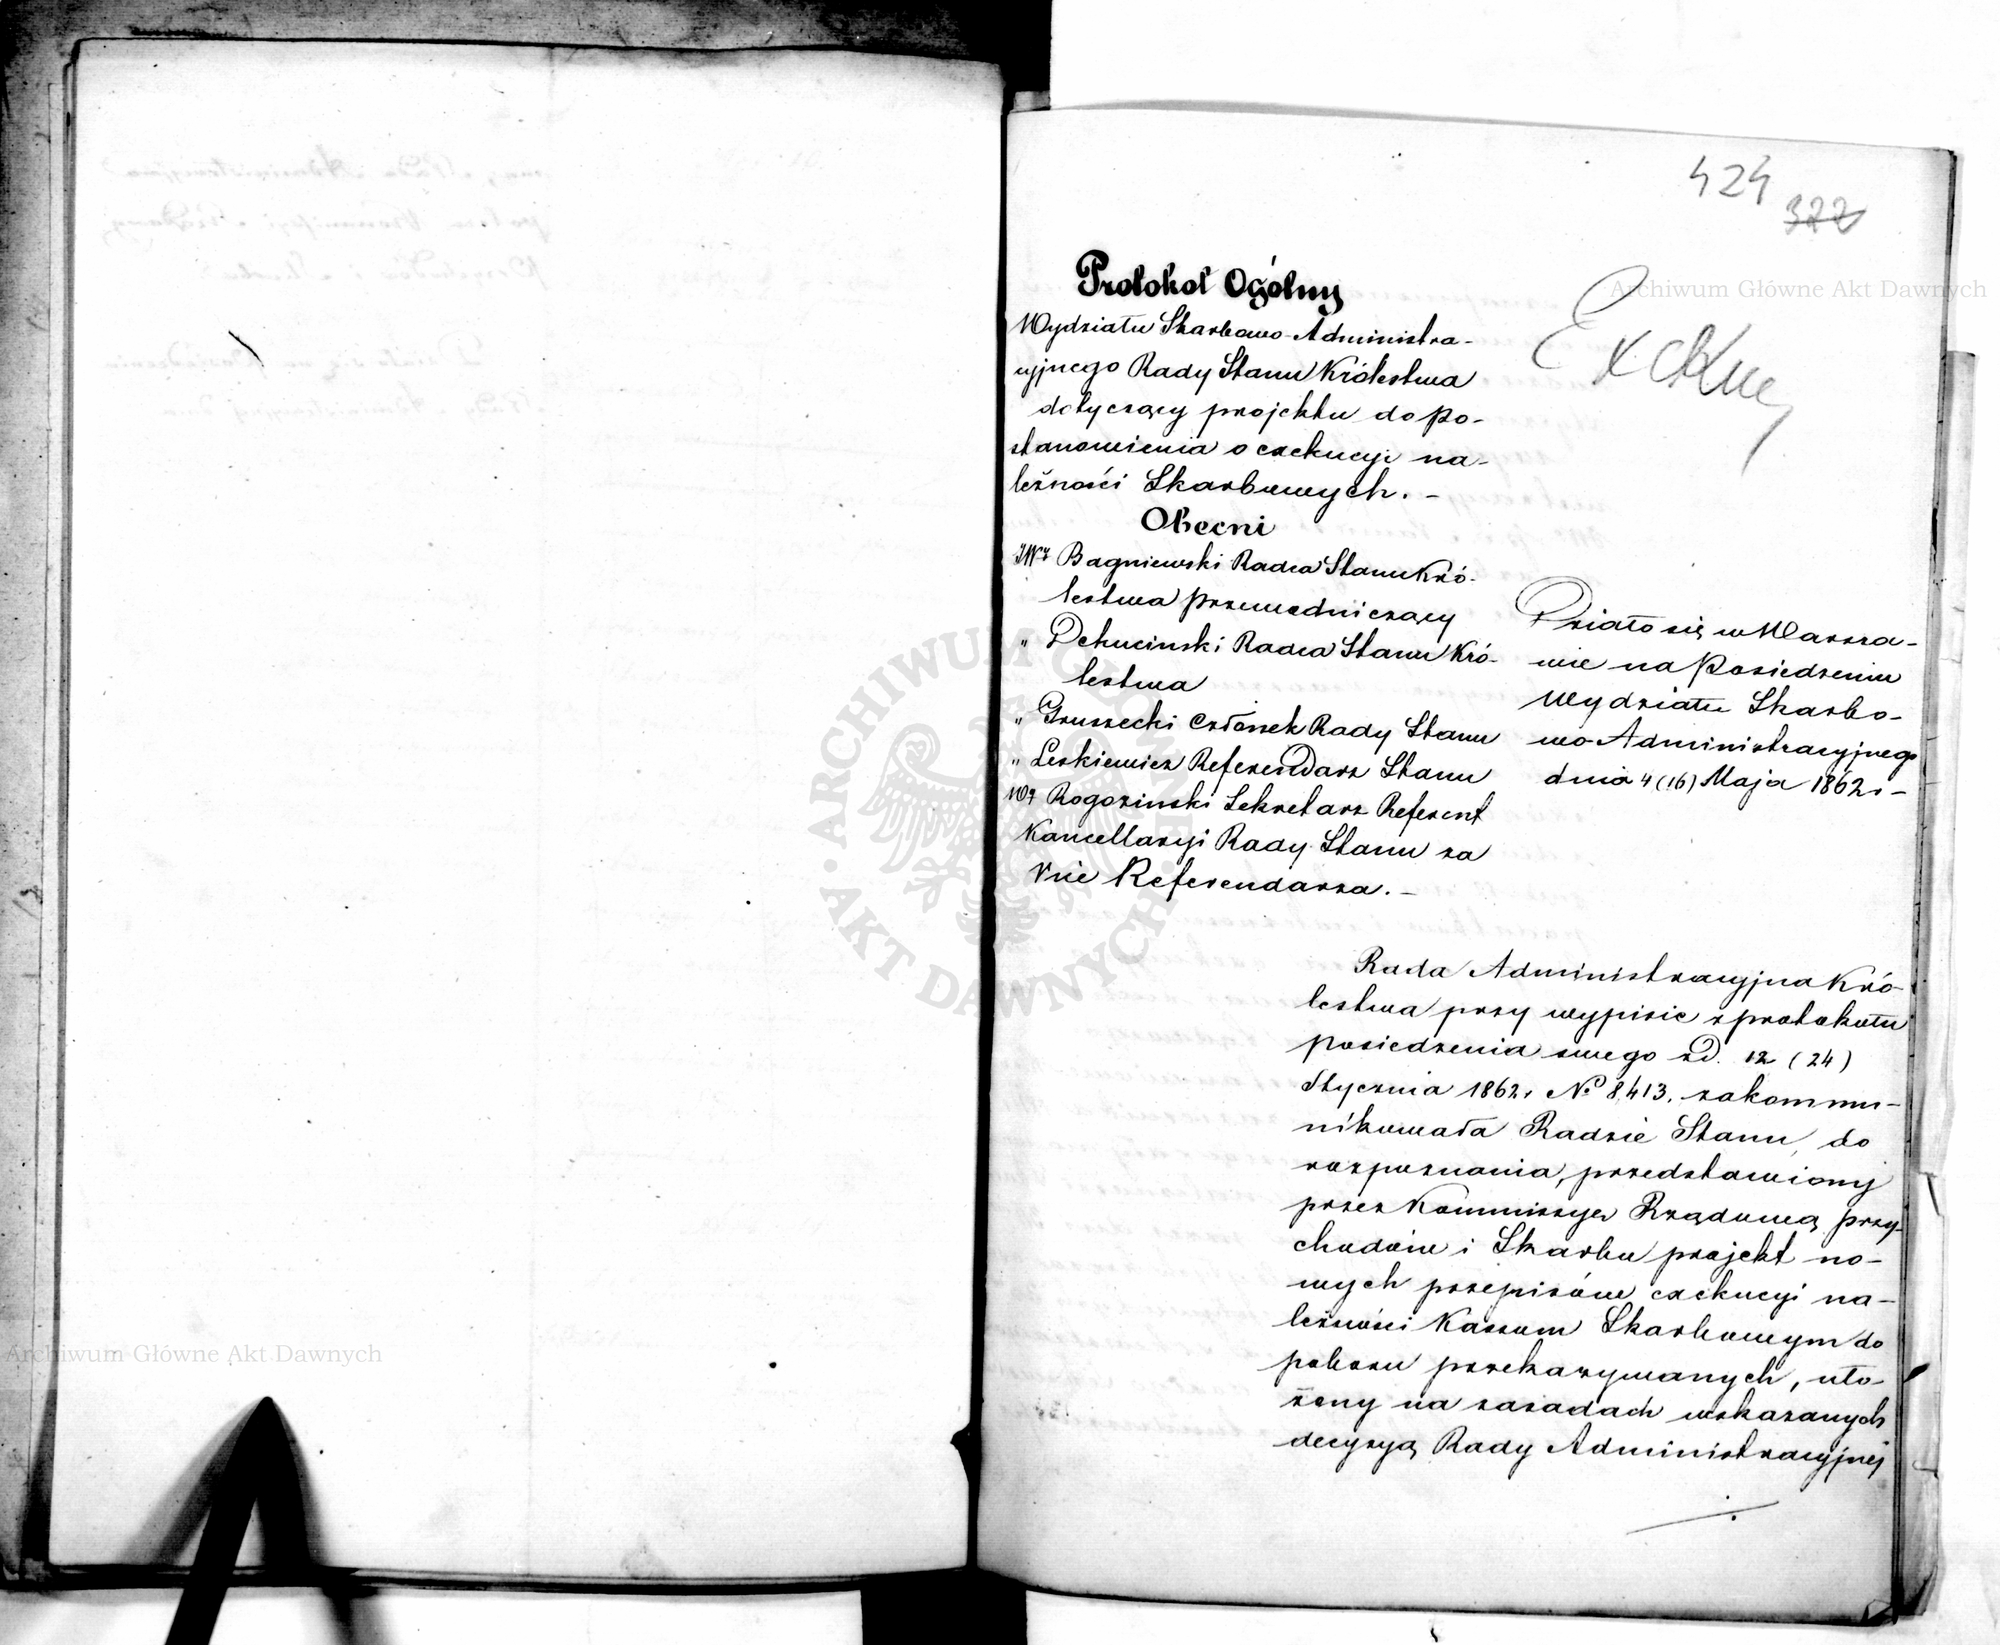 424
322
Protokół Ogólny
Wydziału Skarbowo-Administra-
cyjnego Rady Stanu Królestwa
dotyczący projektu do po-
stanowienia o exekucyi na-
leżności Skarbowych. -
Obecni
JWż Bagniewski Radca Stanu Kró-
lestwa przewodniczący
" Dekuciński Radca Stanu Kró-
lestwa
" Gruszecki Członek Rady Stanu
" Leskiewicz Referendarz Stanu
Wż Rogoziński Sekretarz Referent
Kancellaryi Rady Stanu za
Vice Referendarza. -
Działo się w Warsza-
wie na Posiedzeniu
Wydziału Skarbo-
wo-Administracyjnego
dnia 4 (16) Maja 1862 r -
Rada Administracyjna Kró-
lestwa przy wypisie z protokołu
posiedzenia swego z D. 12 (24)
Stycznia 1862 r No 8,413. zakommu-
nikowała Radzie Stanu, do
rozpoznania, przedstawiony
przez Kommissye Rządową przy-
chodów i Skarbu projekt no-
wych przepisów exekucyi na-
leżności Kassom Skarbowym do
poboru przekazywanych, uło-
żony na zasadach wskazanych
decyzyą Rady Administracyjnej
Archiwum Główne Akt Dawnych
Archiwum Główne Akt Dawnych
ARCHIWUM GŁÓWNE AKT DAWNYCH